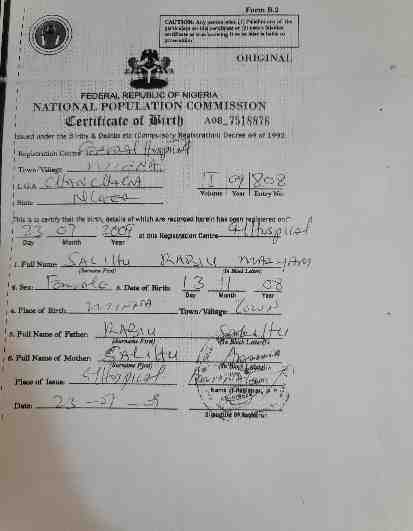 Form B.2
CAUTION: Any person who (1) Falsifies any of the
particulars on this certificate or (2) uses a falsified
certificate as true knowing it to be false is liable to
prosecution
ORIGINAL
FEDERAL REPUBLIC OF NIGERIA
NATIONAL POPULATION COMMISSION
Certificate of Birth A08_7518876
Issued under the Births & Deaths etc (Compulsory Registration) Decree 69 of 1992
Registration Centre General Hospital
Town/Village MINNA
L.G.A CHANCHAGA I 09 808
Volume Year Entry No.
State Niger
This is to certify that the birth, details of which are recorded herein has been registered on
23 07 2009 at this Registration Centre G/Hospital
Day Month Year
1. Full Name: SALIHU RABIU MARYAM
(Surname First) (In Block Letters)
2. Sex: Female 3. Date of Birth: 13 11 08
Day Month Year
4. Place of Birth: MINNA Town/Village: TOWN
5. Full Name of Father: RABIU Salihu
(Surname First) (In Block Letters)
6. Full Name of Mother: SALIHU
(Surname First) (In Block Letters)
Place of Issue: G/Hospital
Name of Registrar
Date: 23 - 07 - 09
Signature of Registrar